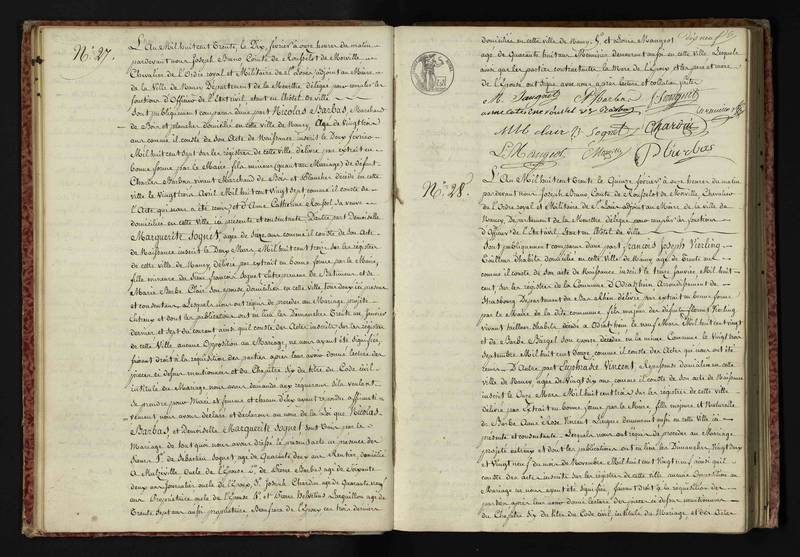 N.° 27.
L'An Mil huit cent Trente, le Dix, février à onze heures du matin
pardevant nous Joseph Bruno Comte de Rousselot de Morville
Chevalier de l'Ordre royal et Militaire de St Louis, adjoint au Maire
de la Ville de Nancy Département de la Meurthe délégué pour remplir les
fonctions d'Officier de l'état civil, étant en l'hôtel de ville
Sont publiquement comparus d'une part Nicolas Barbas, Marchand
de Bois et planches domicilié en cette ville de Nancy, âgé de Vingt trois
ans comme il conste de son acte de Naissance inscrit le Deux février
Mil huit cent sept sur les registres de cette ville délivré par extrait en
bonne forme par le Maire, fils mineur (quant au Mariage) de défunt
Charles Barbas vivant Marchand de Bois et Planches décédé en cette
ville le Vingt trois Avril Mil huit cent vingt sept comme il conste de
l'acte qui nous a été remis, et d'Anne Catherine Roussel sa veuve
domiciliée en cette ville ici présente et consentante. D'autre part Demoiselle
Marguerite Sognet, âgée de Seize ans comme il conste de son acte
de Naissance inscrit le Deux Mars Mil huit cent treize sur les registres
de cette ville de Nancy, délivré par extrait en bonne forme par le Maire,
fille mineure de Sieur françois Sognet Entrepreneur de Bâtimens et de
Marie Barbe Clair son épouse domiciliés en cette ville tous deux ici présens
et consentans. Lesquels nous ont requis de procéder au Mariage projeté
entr'eux et dont les publications ont eu lieu les Dimanches Trente un janvier
dernier et sept du courant ainsi qu'il conste des actes inscrits sur les registres
de cette Ville. aucune Opposition au Mariage, ne nous ayant été signifiée,
faisant droit à la réquisition des parties après leur avoir donné lecture des
pièces ci dessus mentionnées et du Chapitre six du titre du Code civil
intitulé du Mariage nous avons demandé aux requérans s'ils veulent
se prendre pour Mari et femme et chacun d'eux ayant répondu affirmati-
vement nous avons déclaré et déclarons au nom de la Loi que Nicolas
Barbas et Demoiselle Marguerite Sognet sont Unis par le
Mariage de tout quoi nous avons dressé le présent acte en présence des
Sieurs Sébastien Sognet âgé de Quarante deux ans Rentier, domicilié
à oncle de l'Epouse Pierre Barbas âgé de Soixante
deux ans Journalier oncle de l'Epoux, St Joseph Chardin âgé de Quarante neuf
ans Propriétaire oncle de l'Epouse et Pierre âgé de
Trente Sept ans aussi propriétaire Beau frère de l'Epoux ces trois derniers
domiciliés en cette ville de Nancy, et Louis Mangeot
âgé de Quarante huit ans Menuisier demeurant aussi en cette ville. Lesquels
ainsi que les parties contractantes, la Mère de l'Epoux et les père et mère
de l'Epouse ont signé avec nous après lecture et collation faite
M. Sognet
Barbas
Sognet
anne catherine roussel Ve Barbas
MB Clair
Sognet
Chardin
L. Mangeot
P Barbas
N.° 28.
L'An Mil huit cent Trente le Quinze février à onze heures du matin
pardevant nous Joseph Bruno Comte de Rousselot de Morville, Chevalier
de l'Ordre royal et Militaire de St Louis adjoint au Maire de la ville de
Nancy, Département de la Meurthe délégué pour remplir les fonctions
d'Officier de l'état civil, étant en l'hôtel de Ville
Sont publiquement comparus d'une part françois Joseph Kierling
Tailleur d'habits domicilié en cette ville de Nancy âgé de Trente ans
comme il conste de son acte de Naissance inscrit le treize janvier Mil huit
cent sur les registres de la Commune d'Obschæffolsheim Arrondissement de
Strasbourg Département du Bas Rhin délivré par extrait en bonne forme
par le Maire de la dite commune, fils majeur des défunts florent Kierling
vivant tailleur d'habits décédé à le neuf Mars Mil huit cent vingt
et de Barbe son épouse décédée en la même Commune le Vingt trois
Septembre Mil huit cent douze comme il conste des actes qui nous ont été
remis. D'Autre part Euphrasie Vincent Repasseuse domiciliée en cette
ville de Nancy âgée de Vingt six ans, comme il conste de son acte de Naissance
inscrit le Onze Mars Mil huit cent trois sur les registres de cette ville
délivré par extrait en bonne forme par le Maire, fille majeure et Naturelle
de Barbe Anne Rose Vincent Lingère demeurant aussi en cette ville ici
présente et consentante. Lesquels nous ont requis de procéder au Mariage
projeté entr'eux et dont les publications ont eu lieu les Dimanches Vingt deux
et Vingt neuf du mois de Novembre Mil huit cent Vingt neuf ainsi qu'il
conste des actes inscrits sur les registres de cette ville. aucune Opposition au
Mariage ne nous ayant été signifiée, faisant droit à la réquisition des
parties après leur avoir donné lecture des pièces ci dessus mentionnées
du Chapitre six du titre du Code civil, intitulé du Mariage, et des actes